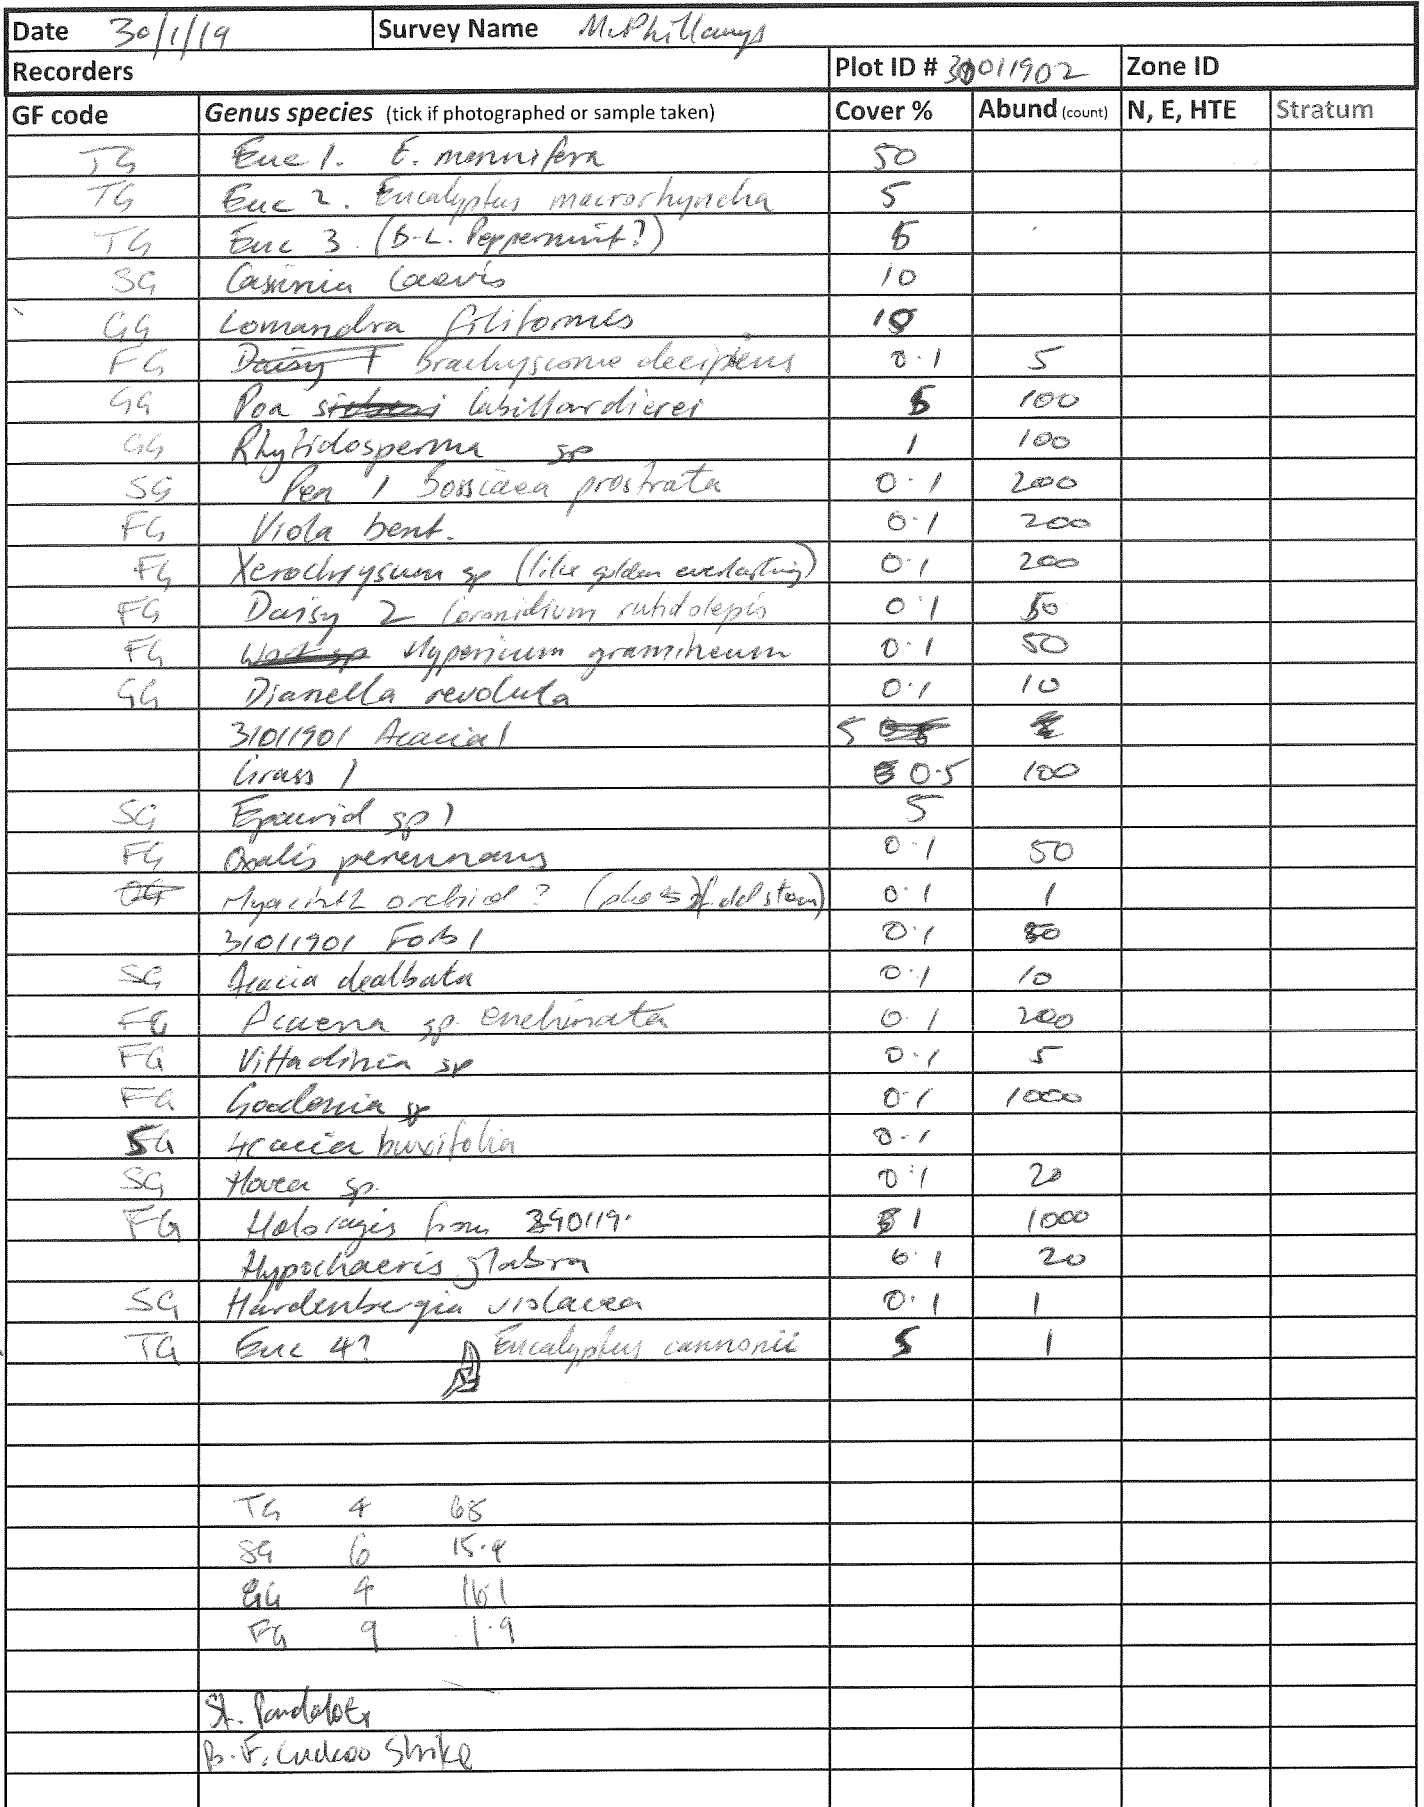 Date 30/1/19 Survey Name McPhillamys
Recorders Plot ID # 30011902 Zone ID
GF code Genus species (tick if photographed or sample taken) Cover % Abund (count) N, E, HTE Stratum
TG Euc 1. E. mannifera 50
TG Euc 2. Eucalyptus macrorhyncha 5
TG Euc 3. (B-L. Peppermint?) 5
SG Cassinia laevis 10
GG Lomandra filiformis 10
FG Daisy 1 Brachyscome decipiens 0.1 5
GG Poa labillardierei 5 100
GG Rhytidosperma sp 1 100
SG Pea 1 Bossiaea prostrata 0.1 200
FG Viola bent. 0.1 200
FG Xerochrysum sp (like golden everlasting) 0.1 200
FG Daisy 2 Coronidium rutidolepis 0.1 50
FG Hypericum gramineum 0.1 50
GG Dianella revoluta 0.1 10
31011901 Acacia 1 5
Grass 1 0.5 100
SG Epacrid sp 1 5
FG Oxalis perennans 0.1 50
Hyacinth orchid? (photo of old stem) 0.1 1
31011901 FORB 1 0.1 50
SG Acacia dealbata 0.1 10
FG Acaena sp. enchinata 0.1 200
FG Vittadinia sp 0.1 5
FG Goodenia sp 0.1 1000
SG Acacia buxifolia 0.1
SG Hovea sp. 0.1 20
FG Haloragis from 290119. 1 1000
Hypochaeris glabra 0.1 20
SG Hardenbergia violacea 0.1 1
TG Euc 4? Eucalyptus cannonii 5 1
TG 4 65
SG 6 15.4
GG 4 16.1
FG 9 1.9
St. Pardalote
B.F. Cuckoo Shrike